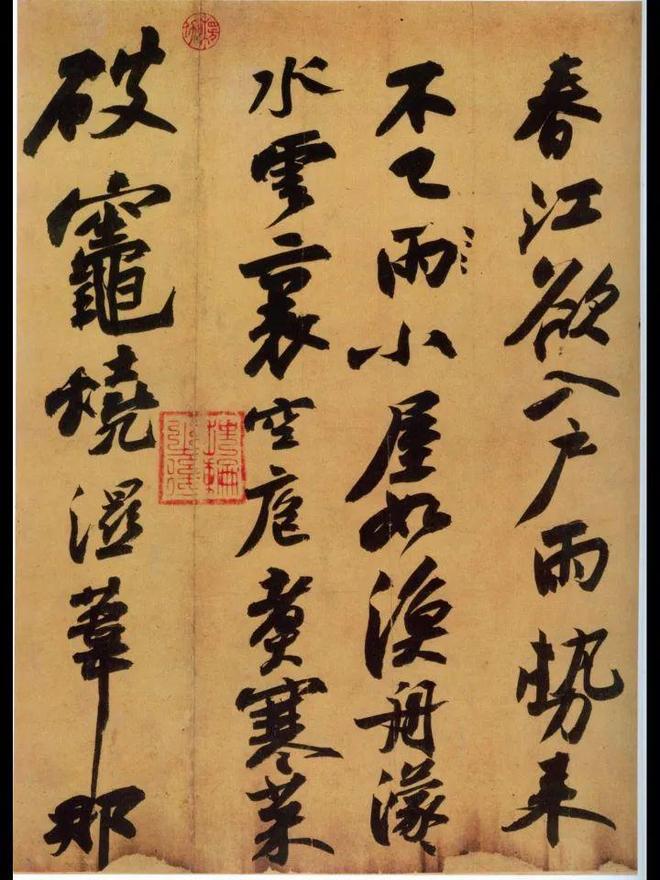 春江欲入户雨勢来
不已雨小屋如漁舟濛〻
水雲裏空庖煮寒菜
破竈燒濕葦那